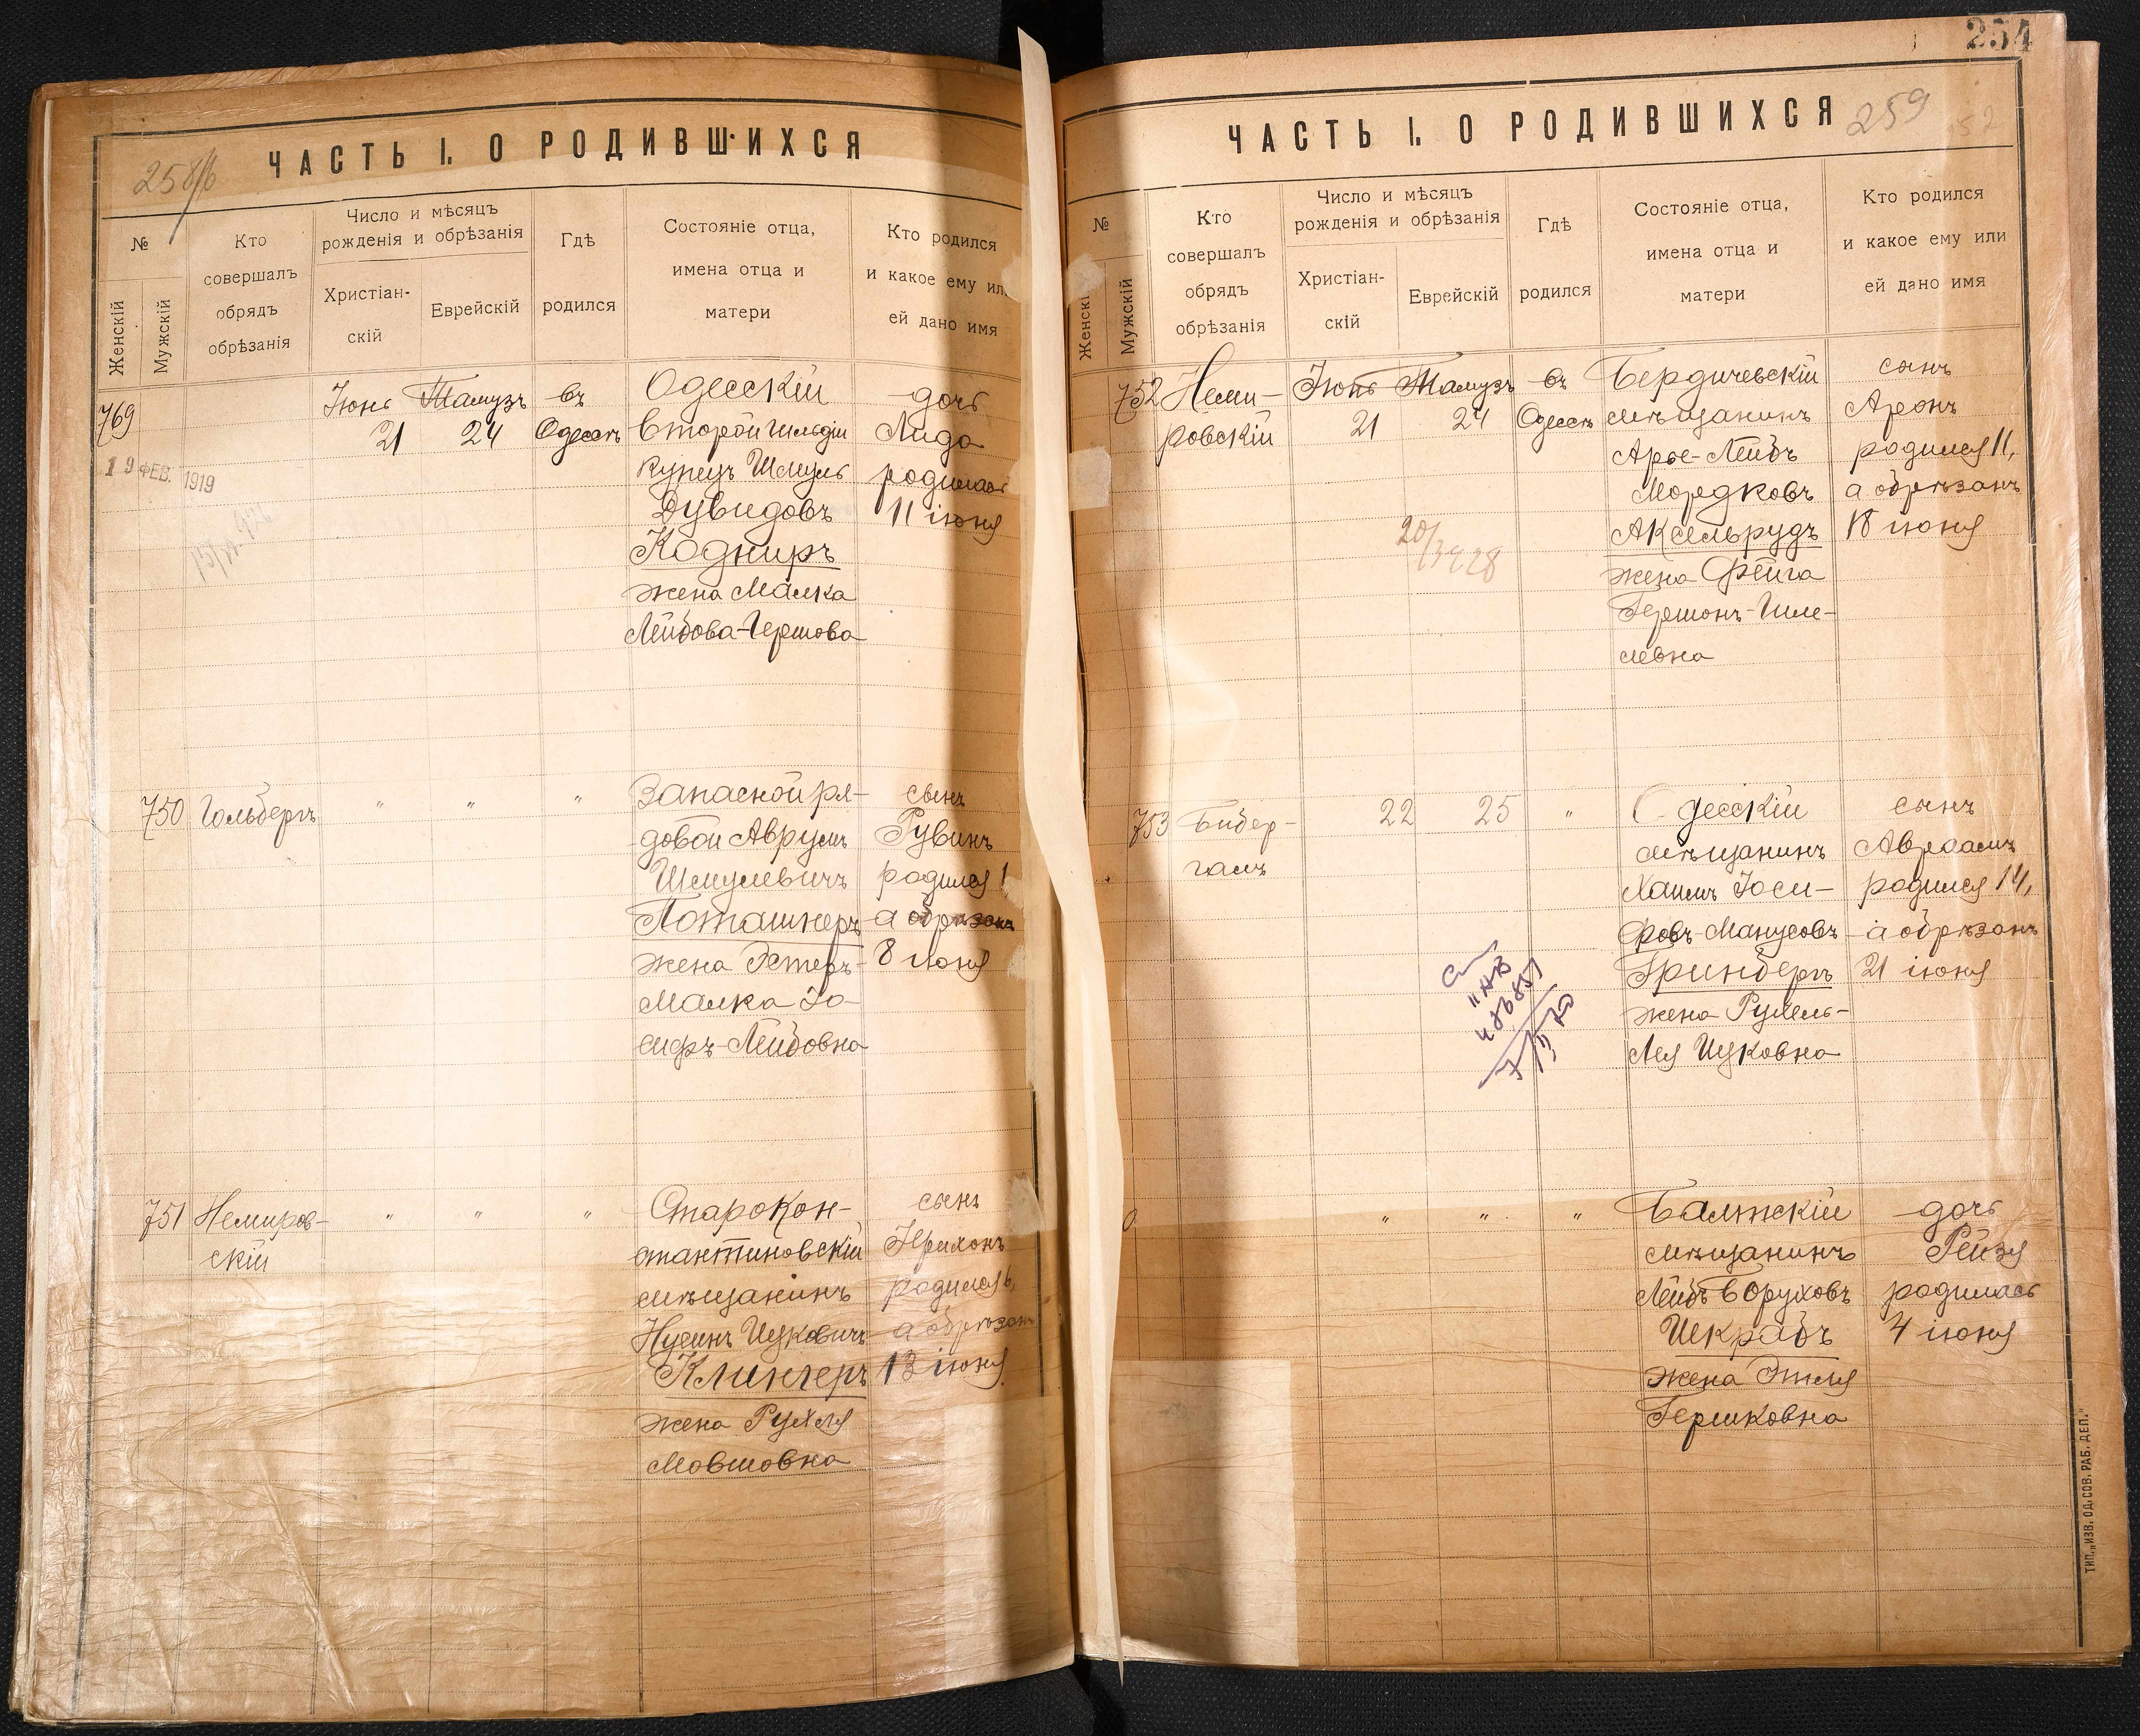 ЧАСТЬ I. О РОДИВШИХСЯ
№
Женскій
Мужскій
Кто
совершалъ
обрядъ
обрѣзанія
Число и мѣсяцъ
рожденія и обрѣзанія
Христіан-
скій
Еврейскій
Гдѣ
родился
Состояніе отца,
имена отца и
матери
Кто родился
и какое ему или
ей дано имя
769
19 ФЕВ. 1919
Іюнь
21
Тамузъ
24
въ
Одессѣ
Одесскій
второй гильдіи
купецъ Шмуль
Дувидовъ
Кодниръ
жена Малка
Лейбова-Гершова
дочь
Лида
родилась
11 іюня
750
Гольбергъ
"
"
"
Запасной ря-
довой Аврумъ
Шмулевичъ
Поташнеръ
жена Эстеръ-
Малка Іо-
сифъ-Лейбовна
сынъ
Рувинъ
родился 1
а обрѣзанъ
8 іюня
751
Немиров-
скій
"
"
"
Старокон-
стантиновскій
мѣщанинъ
Нусинъ Ицковичъ
Клингеръ
жена Рухля
Мовшовна
сынъ
Іерихонъ
родился 6,
а обрѣзанъ
13 іюня
254
ЧАСТЬ I. О РОДИВШИХСЯ
259
№
Женскі
Мужскій
Кто
совершалъ
обрядъ
обрѣзанія
Число и мѣсяцъ
рожденія и обрѣзанія
Христіан-
скій
Еврейскій
Гдѣ
родился
Состояніе отца,
имена отца и
матери
Кто родился
и какое ему или
ей дано имя
752
Неми-
ровскій
Іюнь
21
Тамузъ
24
въ
Одессѣ
Бердичевскій
мѣщанинъ
Арье-Лейбъ
Мордковъ
Аксельрудъ
жена Фейга
Гершонъ-Шле-
мовна
сынъ
Аронъ
родился 11,
а обрѣзанъ
18 іюня
753
Бибер-
галъ
22
25
"
Одесскій
мѣщанинъ
Хаимъ Іоси-
фовъ-Манусовъ
Гринбергъ
жена Рухель-
Лея Ицковна
сынъ
Авраамъ
родился 14,
а обрѣзанъ
21 іюня
0
"
"
"
Балтскій
мѣщанинъ
Лейбъ Боруховъ
Шкрабъ
жена Этля
Гершковна
дочь
Рейзя
родилась
4 іюня
ТИП. „ИЗВ. ОД. СОВ. РАБ. ДЕП."